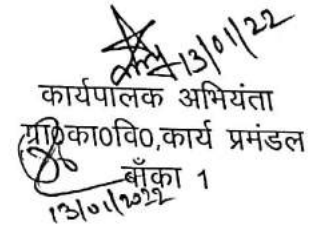 13/01/22
कार्यपालक अभियंता
ग्रा0का0वि0,कार्य प्रमंडल
बाँका 1
13/01/2022